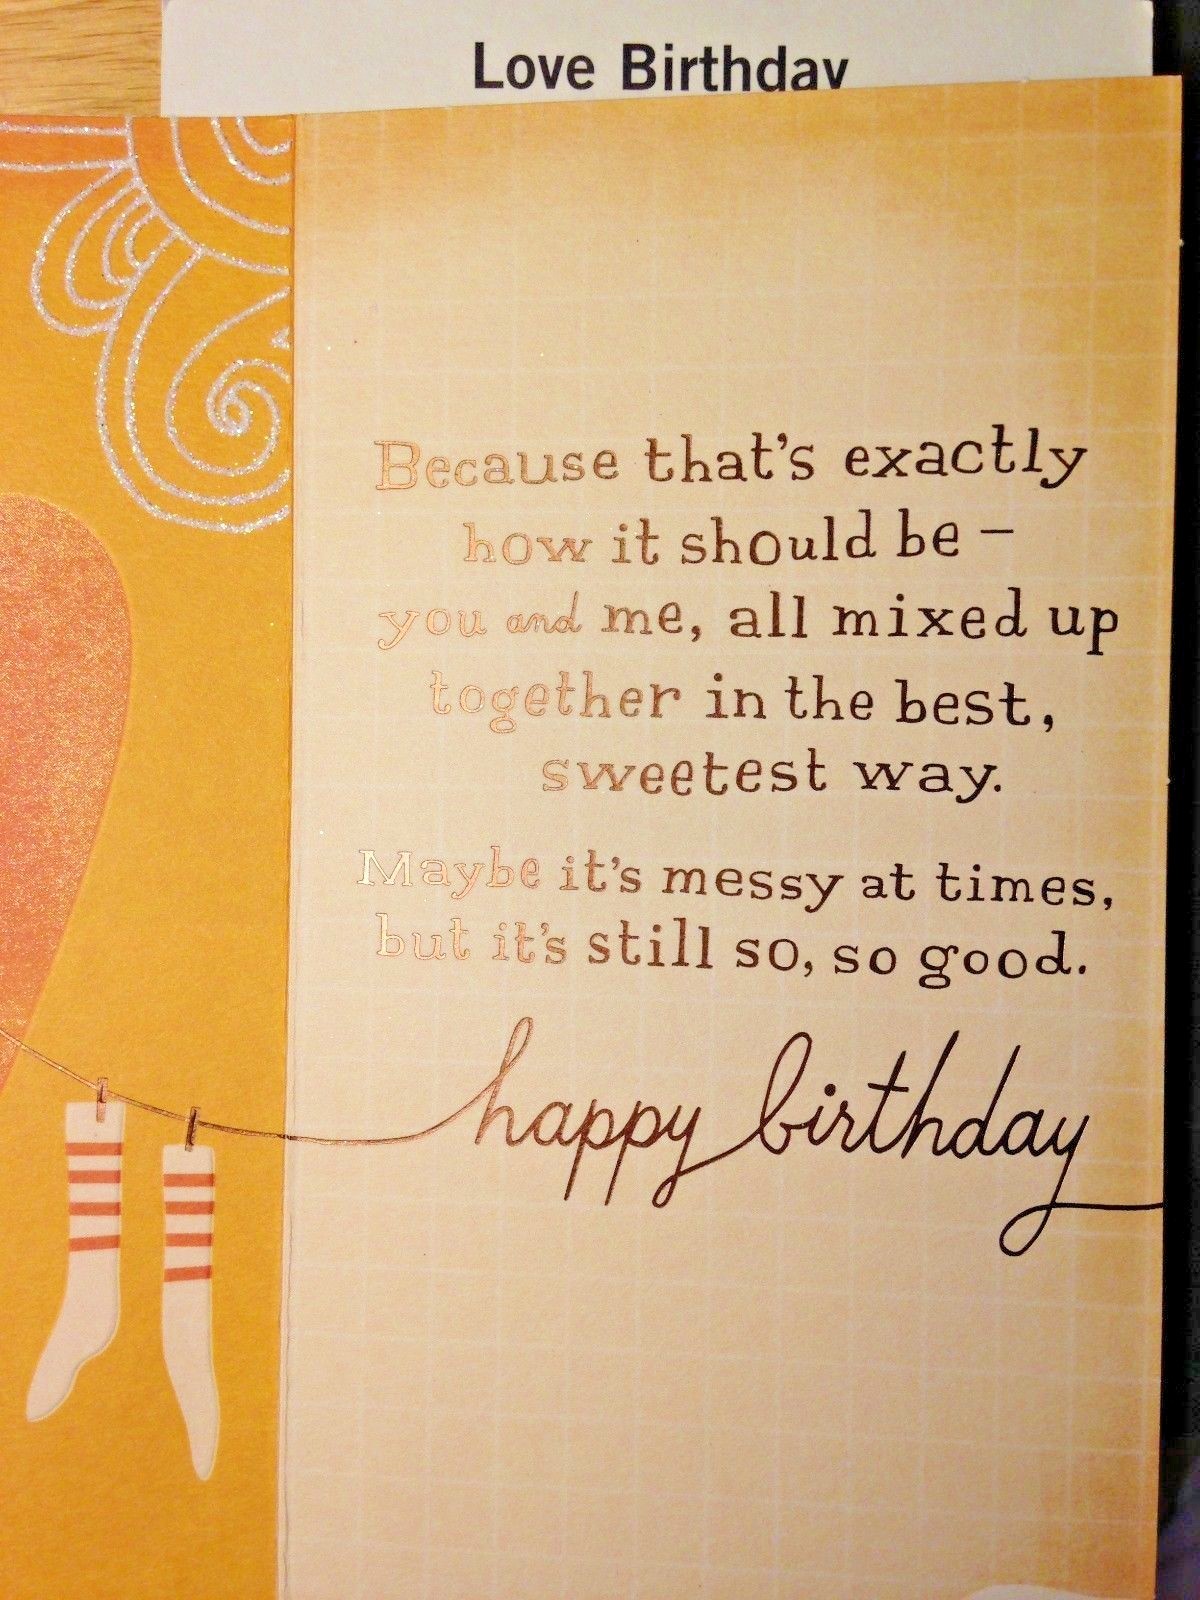 Love Birthday
Because that's exactly
how it should be –
you and me, all mixed up
together in the best,
sweetest way.
Maybe it's messy at times,
but it's still so, so good.
happy birthday